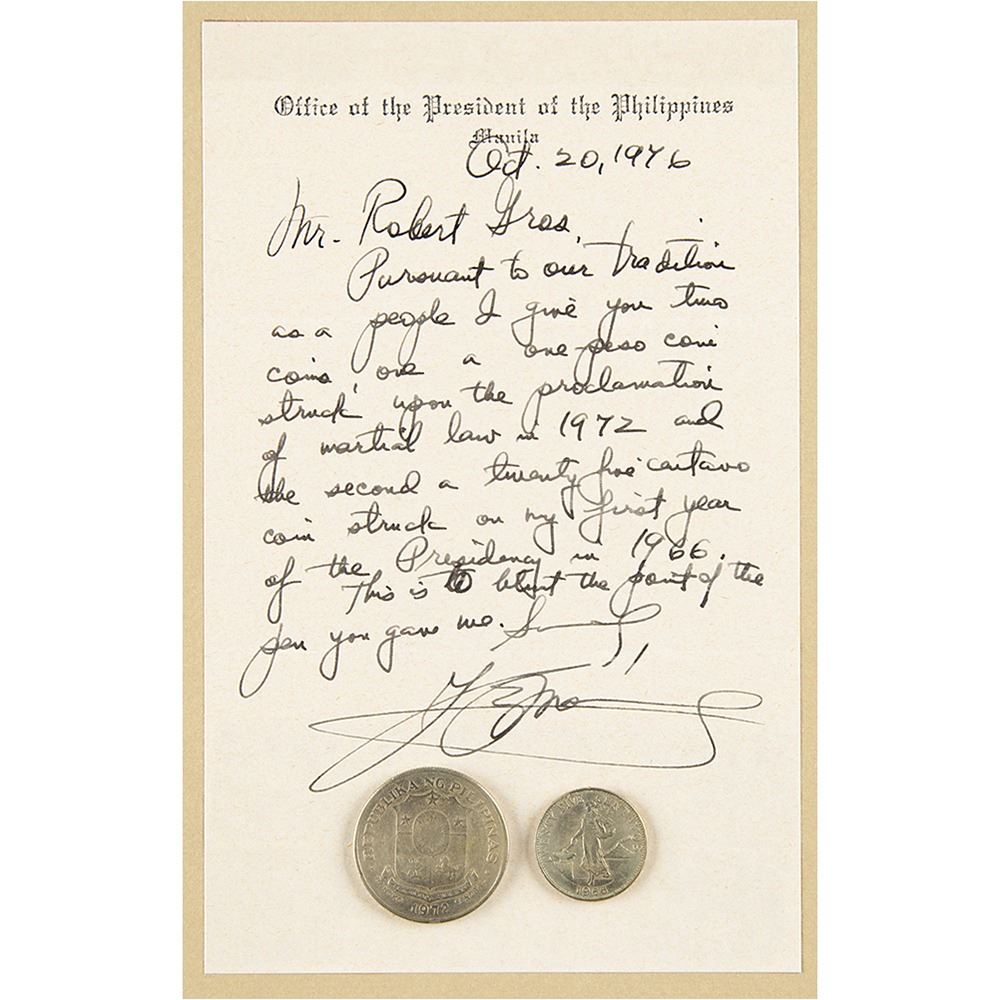 Office of the President of the Philippines
Manila
Oct. 20, 1976
Mr. Robert Gros,
Pursuant to our tradition
as a people I give you two
coins, one a one-peso coin
struck upon the proclamation
of martial law in 1972 and
the second a twenty five centavo
coin struck on my first year
of the Presidency in 1966.
This is to blunt the point of the
pen you gave me.
REPUBLIKA NG PILIPINAS
1972
TWENTY FIVE CENTAVOS